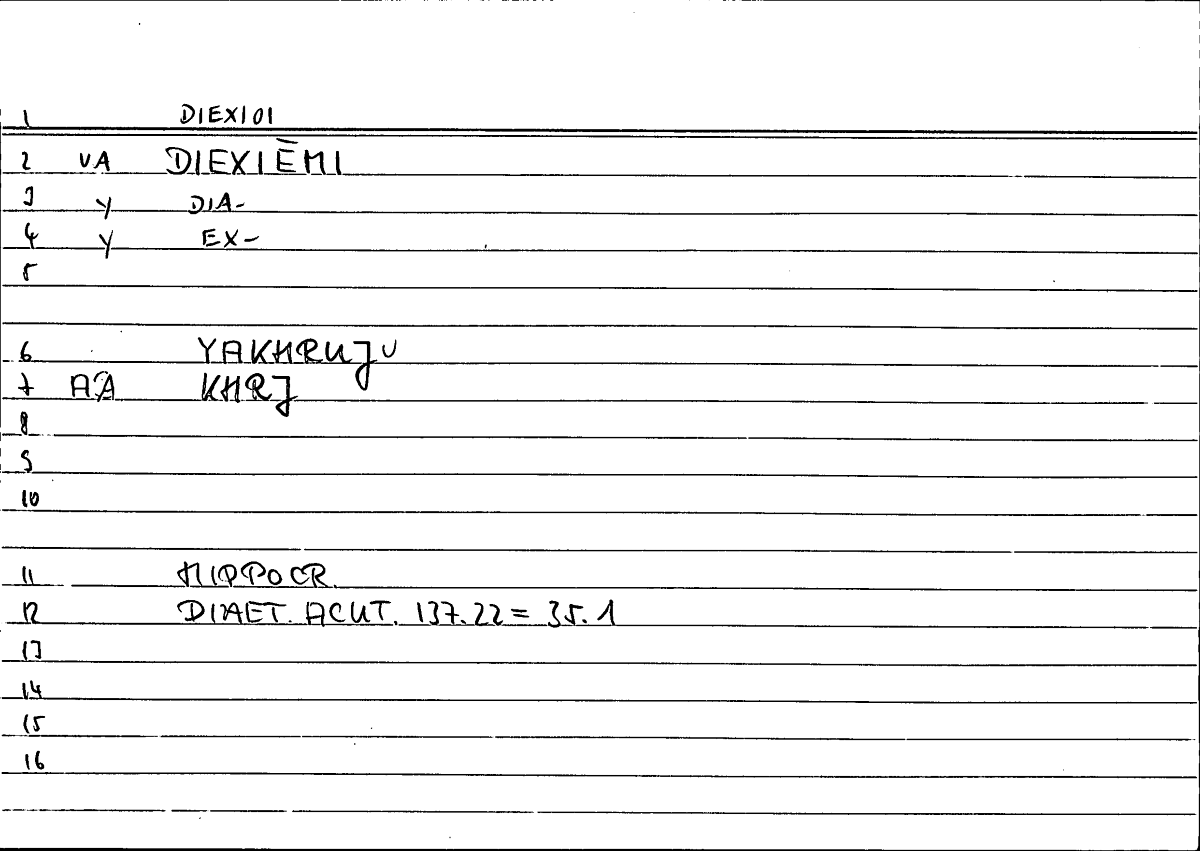 1 DIEXIOI
2 VA DIEXIĒMI
3 Y DIA-
4 Y EX-
5
6 YAKHRUJU
7 AA KHRJ
8
9
10
11 HIPPOCR.
12 DIAET. ACUT. 137.22 = 35.1
13
14
15
16